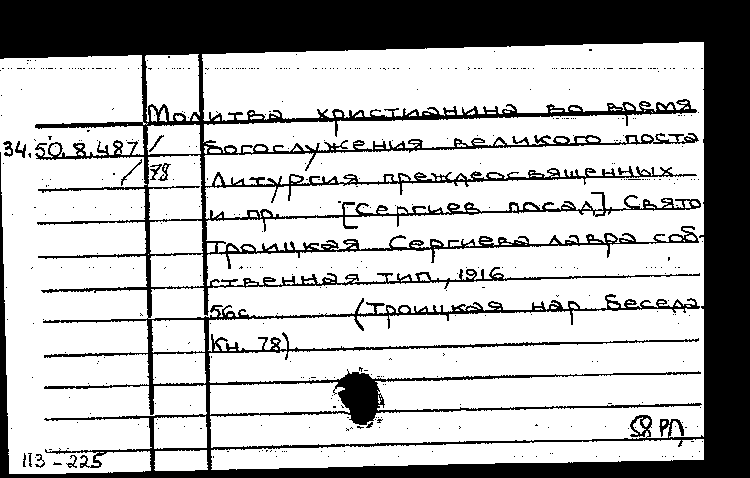 Молитва христианина во время
34.50.8.487/ богослужения великого поста
/78 Литургия преждеосвященных
и пр. [Сергиев посад], Свято-
Троицкая Сергиева лавра соб-
ственная тип., 1916
56с. (Троицкая нар беседа
Кн. 78)
113-225